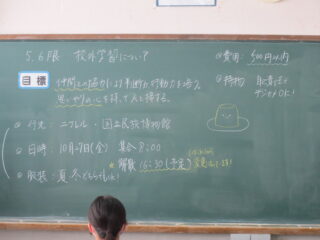 5.6限 校外学習について
目標
仲間との協力により判断力、行動力を培う。
思いやりの心を持って人と接する。
◎行先：ニフレル・国立民族博物館
◎日時：10月27日(金) 集合 8:00
解散 16:30(予定)
◎服装：夏、冬どちらでもよい！
◎費用：500円以内
◎持物
デジカメOK！